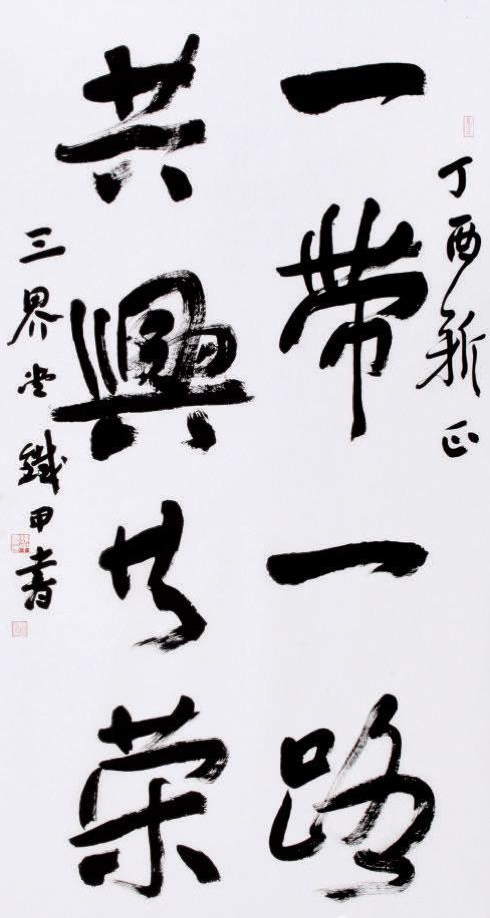 丁酉新正
一带一路
共興共荣
三界堂鐵甲書